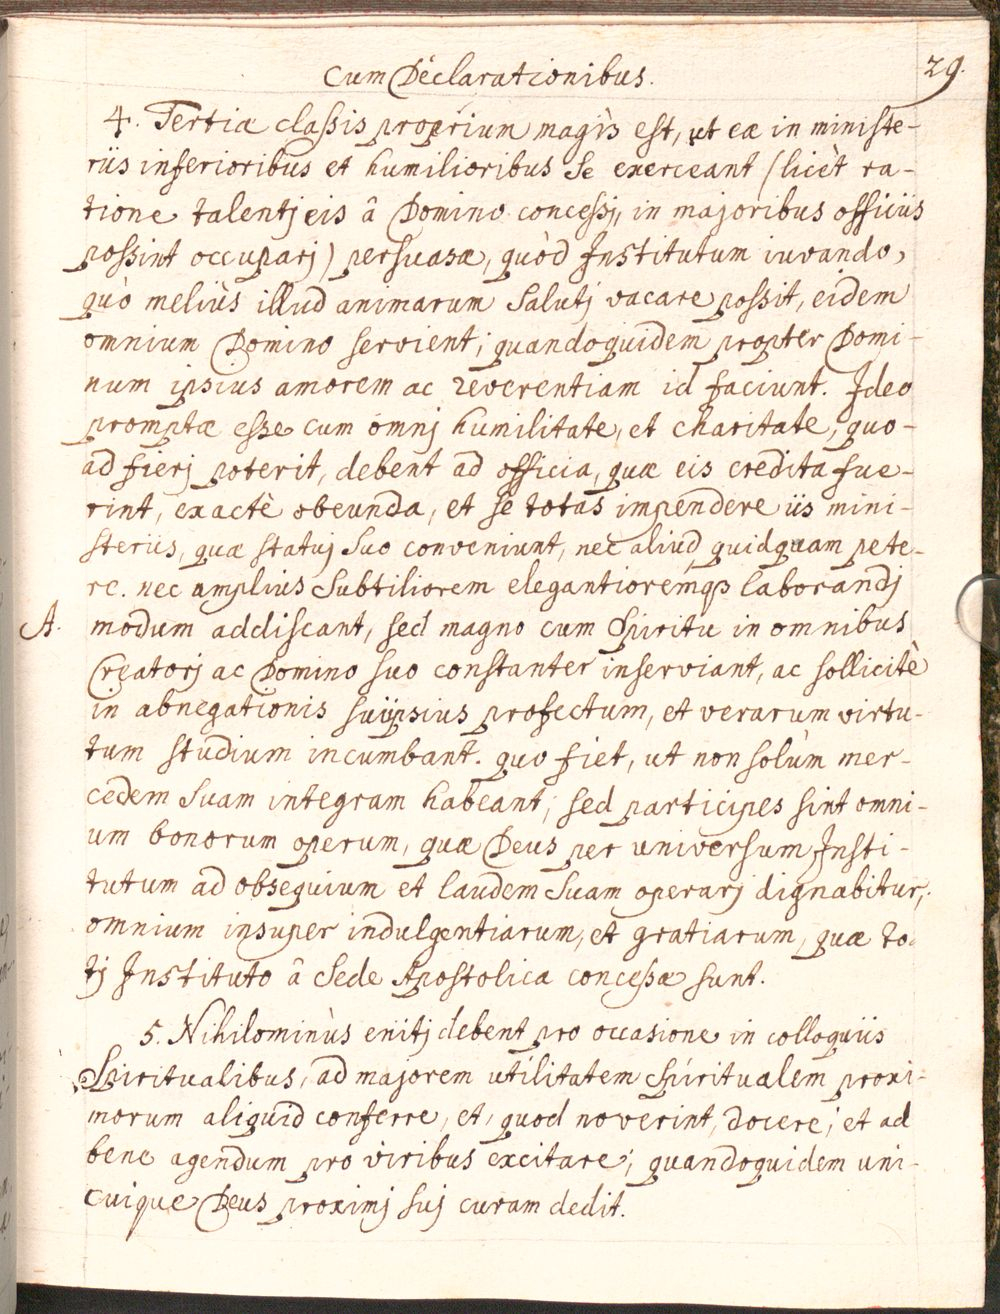 Cum Declarationibus.
29.
4. Tertiæ classis proprium magìs est, ut eæ in ministe-
riis inferioribus et humilioribus se exerceant (licèt ra-
tione talentj eis â Domino concessj, in majoribus officiis
possint occuparj) persuasæ, quòd Institutum iuvando,
quò meliùs illud animarum salutj vacare possit, eidem
omnium Domino servient; quandoquidem propter Domi-
num ipsius amorem ac reverentiam id faciunt. Ideo
promptæ esse cum omnj humilitate, et charitate, quo-
ad fierj poterit, debent ad officia, quæ eis credita fue-
rint, exactè obeunda, et se totas impendere iis mini-
steriis, quæ statuj suo conveniunt, nec aliud quidquam pete-
re. nec amplius subtiliorem elegantioremq3 laborandj
A. modum addiscant, sed magno cum Spiritu in omnibus
Creatorj ac Domino suo constanter inserviant, ac sollicitè
in abnegationis suiipsius profectum, et verarum virtu-
tum studium incumbant. quo fiet, ut non solùm mer-
cedem suam integram habeant; sed participes sint omni-
um bonorum operum, quæ Deus per universum Insti-
tutum ad obsequium et laudem suam operarj dignabitur;
omnium insuper indulgentiarum, et gratiarum, quæ to-
tj Instituto â Sede Apostolica concessæ sunt.
5. Nihilominùs enitj debent pro occasione in colloquiis
Spiritualibus, ad majorem utilitatem spiritualem proxi-
morum aliquid conferre, et, quod noverint, docere; et ad
bene agendum pro viribus excitare; quandoquidem uni-
cuique Deus proximj suj curam dedit.